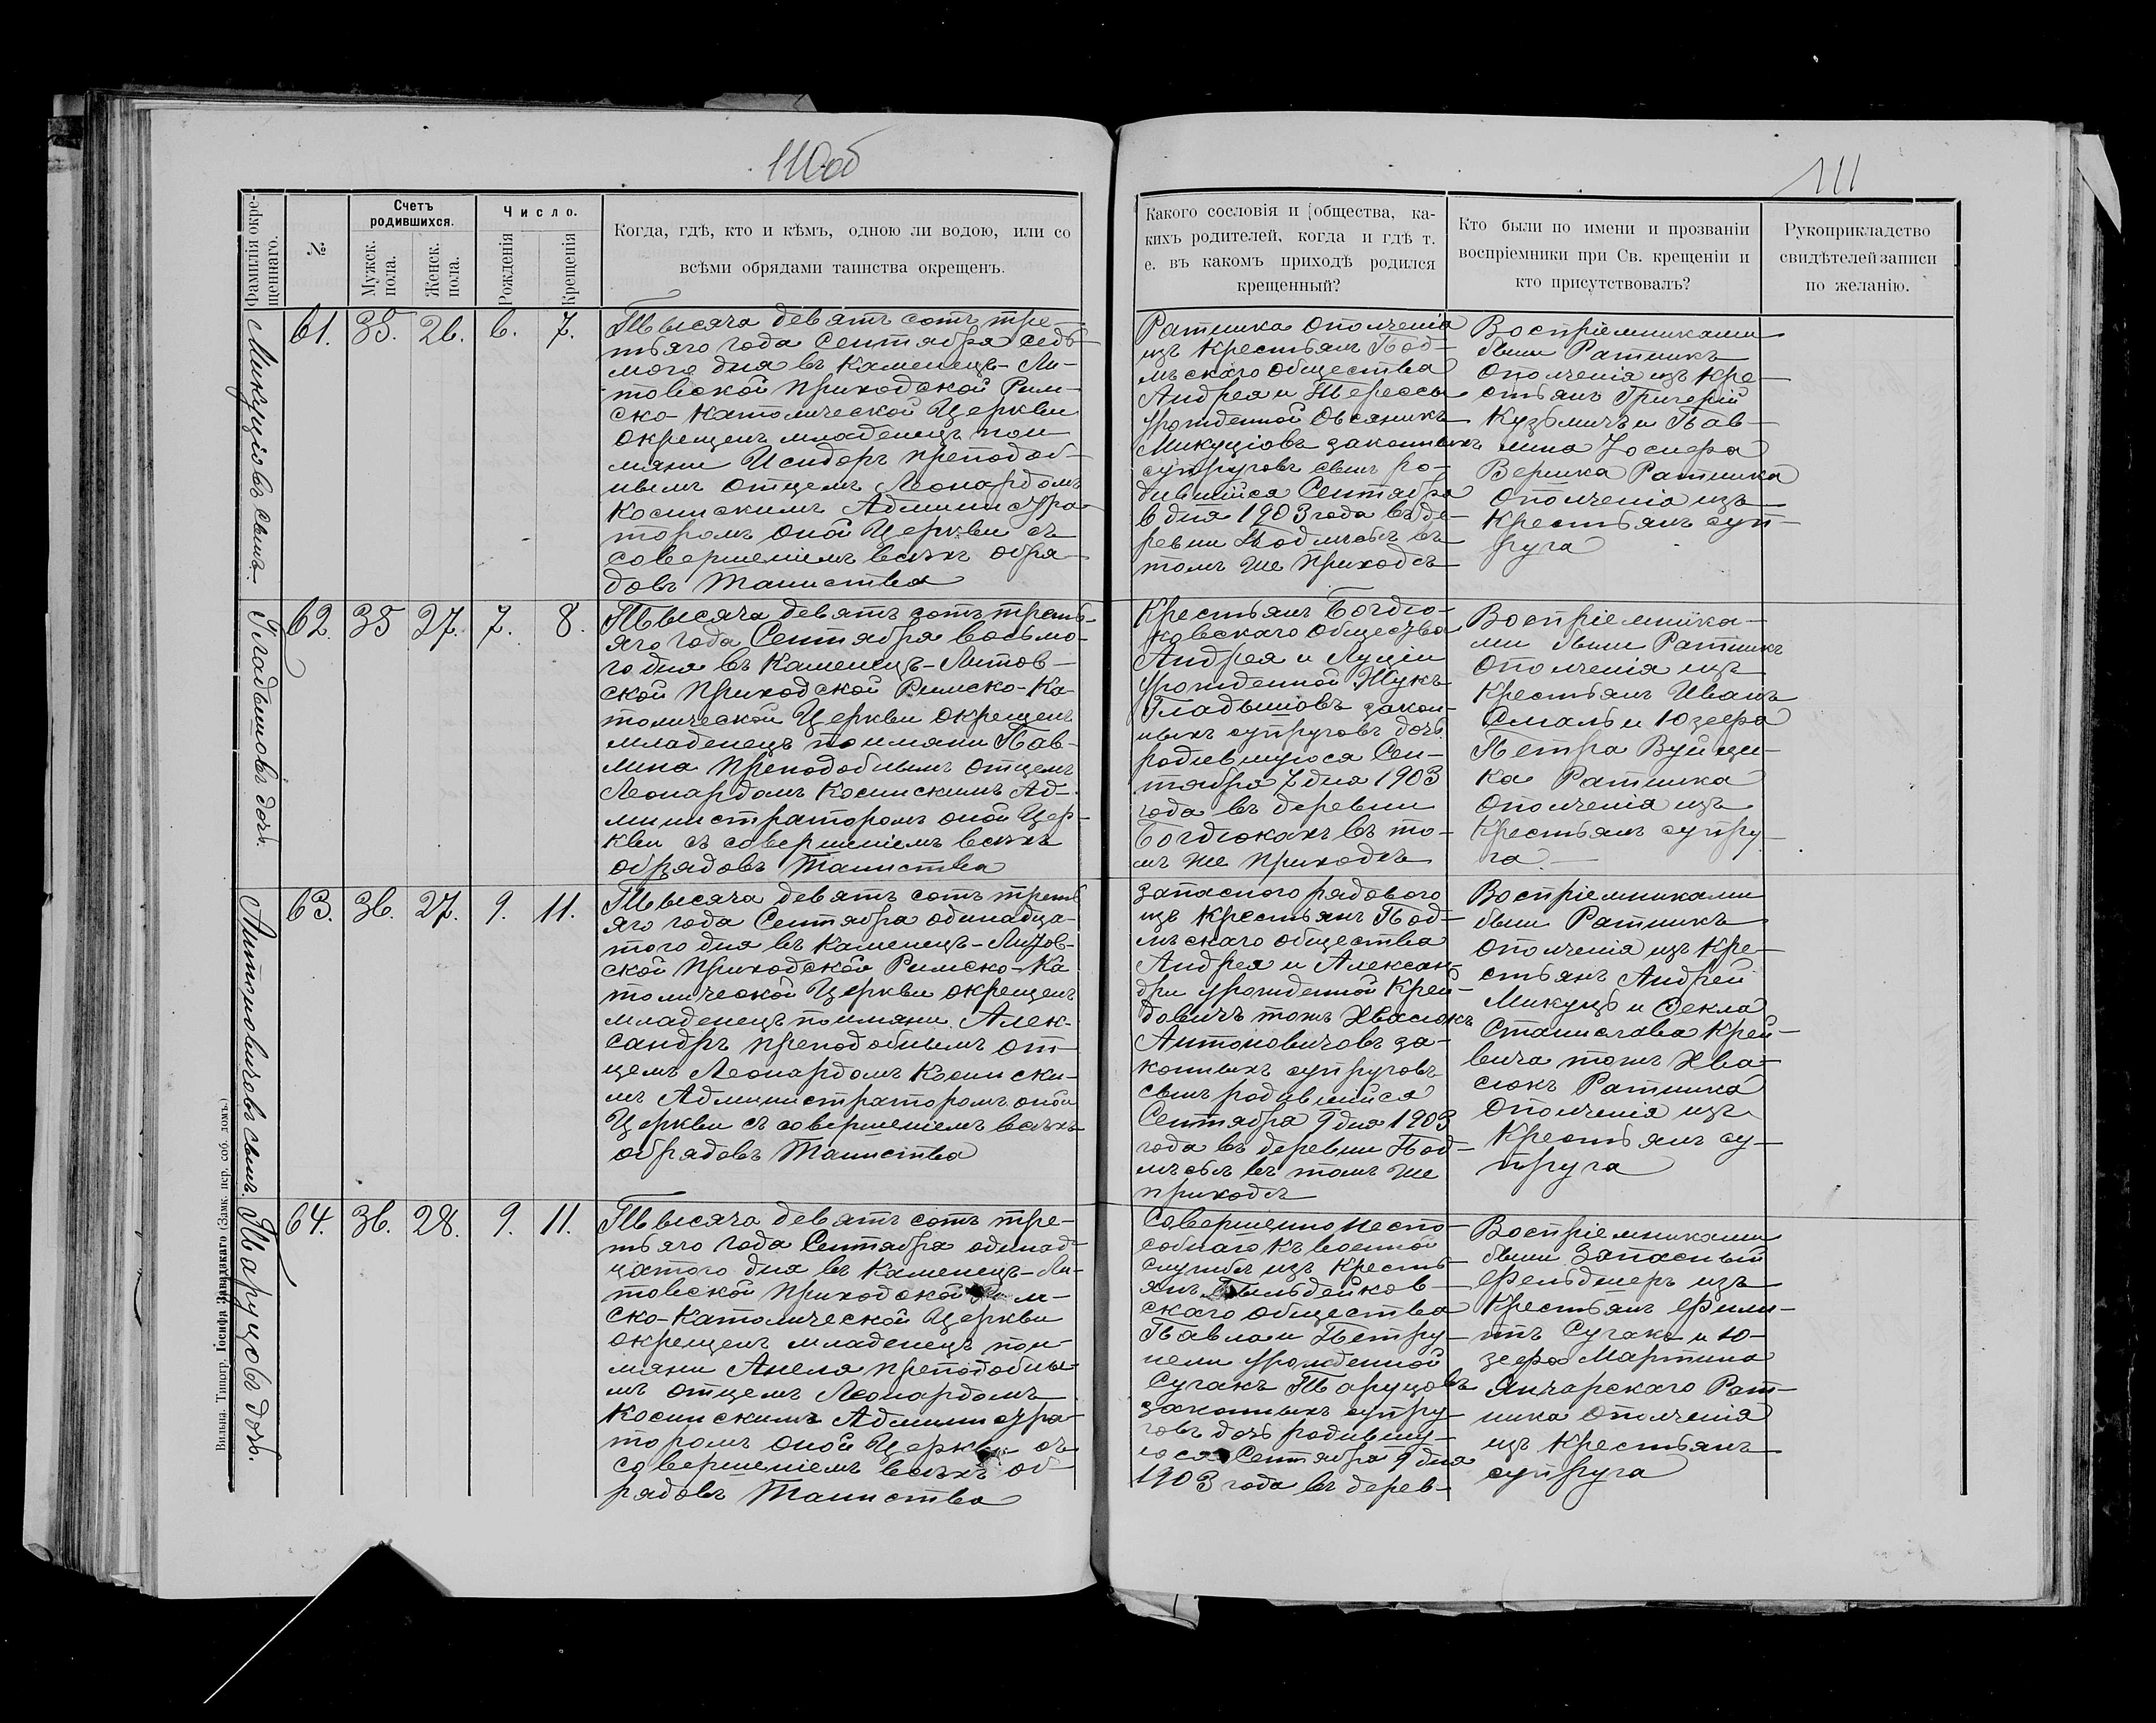 110об
111
фамилія окре-
щеннаго.
№
Счетъ
родившихся.
Мужск.
пола.
Женск.
пола.
Число.
Рожденія
Крещенія
Когда, гдѣ, кто и кѣмъ, одною ли водою, или со
всѣми обрядами таинства окрещенъ.
Какого сословія и общества, ка-
кихъ родителей, когда и гдѣ т.
е. въ какомъ приходѣ родился
крещенный?
Кто были по имени и прозванію
воспріемники при Св. крещеніи и
кто присутствовалъ?
Рукоприкладство
свидѣтелей записи
по желанію.
Микуціовъ сынъ.
61. 35. 26. 6. 7.
Тысяча девятъ сотъ тре-
тьяго года Сентября седь-
мого дня въ Каменецъ-Ли-
товской Приходской Рим-
ско-Католической Церкви
окрещенъ младенецъ пои-
мяни Исидоръ преподоб-
нымъ отцемъ Леонардомъ
Косинскимъ Администра-
торомъ оной Церкви съ
совершеніемъ всѣхъ обря-
довъ Таинства
Ратника ополченія
изъ Крестьянъ Под-
лѣскаго общества
Андрея и Терессы
урожденной Овсяникъ
Микуціовъ законныхъ
супруговъ сынъ ро-
дившійся Сентября
6 дня 1903 года въ де-
ревни Подлѣсьѣ въ
томъ же приходѣ
Воспріемниками
были Ратникъ
ополченія изъ Кре-
стьянъ Григерій
Кузьмичъ и Пав-
лина Іосифа
Верика Ратника
ополченія изъ
Крестьянъ суп-
руга
Гладышовъ дочь.
62. 35 27. 7. 8.
Тысяча девятъ сотъ треть-
яго года Сентября восьмо-
го дня въ Каменецъ-Литов-
ской Приходской Римско-Ка-
толической Церкви окрещенъ
младенецъ поимяни Пав-
лина преподобнымъ отцемъ
Леонардомъ Косинскимъ Ад-
министраторомъ оной Цер-
кви съ совершеніемъ всѣхъ
обрядовъ Таинства
Крестьянъ Богдю-
ковскаго общества
Андрея и Луціи
урожденной Жукъ
Гладышовъ закон-
ныхъ супруговъ дочь
родившуюся Сен-
тября 7 дня 1903
года въ деревни
Богдюкахъ въ то-
мъ же приходѣ
Воспріемника-
ми были Ратникъ
ополченія изъ
Крестьянъ Иванъ
Смаль и Юзефа
Петра Вуйци-
ка Ратника
ополченія изъ
Крестьянъ супру-
га
Антоновичовъ сынъ.
63. 36. 27. 9. 11.
Тысяча девятъ сотъ треть
яго года Сентября одинадца-
того дня въ Каменецъ-Литов-
ской Приходской Римско-Ка
толической Церкви окрещенъ
младенецъ поимяни Алек-
сандръ преподобнымъ от-
цемъ Леонардомъ Косински-
мъ Администраторомъ оной
Церкви съ совершеніемъ всѣхъ
обрядовъ Таинства
Запаснаго рядового
изъ Крестьянъ Под-
лѣскаго общества
Андрея и Алексан-
дри урожденной Крей-
довичъ тожъ Хвасюкъ
Антоновичовъ за-
конныхъ супруговъ
сынъ родившійся
Сентября 9 дня 1903
года въ деревни Под-
лѣсьѣ въ томъ же
приходѣ
Воспріемниками
были Ратникъ
ополченія изъ Кре-
стьянъ Андрей
Микуцъ и Фекла
Станислава Крей-
вича тожъ Хва-
сюкъ Ратника
ополченія изъ
Крестьянъ су-
пруга
Таруцовъ дочь.
64. 36. 28. 9. 11.
Тысяча девятъ сотъ тре-
тьяго года Сентября одинад-
цатого дня въ Каменецъ-Ли-
товской Приходской Рим-
ско-Католической Церкви
окрещенъ младенецъ пои-
мяни Анеля преподобны-
мъ отцемъ Леонардомъ
Косинскимъ Администра-
торомъ оной Церкви съ
совершеніемъ всѣхъ об-
рядовъ Таинства
Совершенно неспо-
собнаго къ военной
службѣ изъ Кресть
янъ Пильдейков-
скаго общества
Павла и Петру-
нели урожденной
Сугакъ Таруцовъ
законныхъ супру-
говъ дочь родившу-
юся Сентября 9 дня
1903 года въ дерев-
Воспріемниками
были Запасный
фельдшеръ изъ
Крестьянъ Фили-
пъ Сугакъ и Ю-
зефа Мартина
Янчарскаго Рат-
ника ополченія
изъ Крестьянъ
супруга
Вильна. Типогр. Іосифа Завадзкаго (Замк. пер. соб. домъ.)